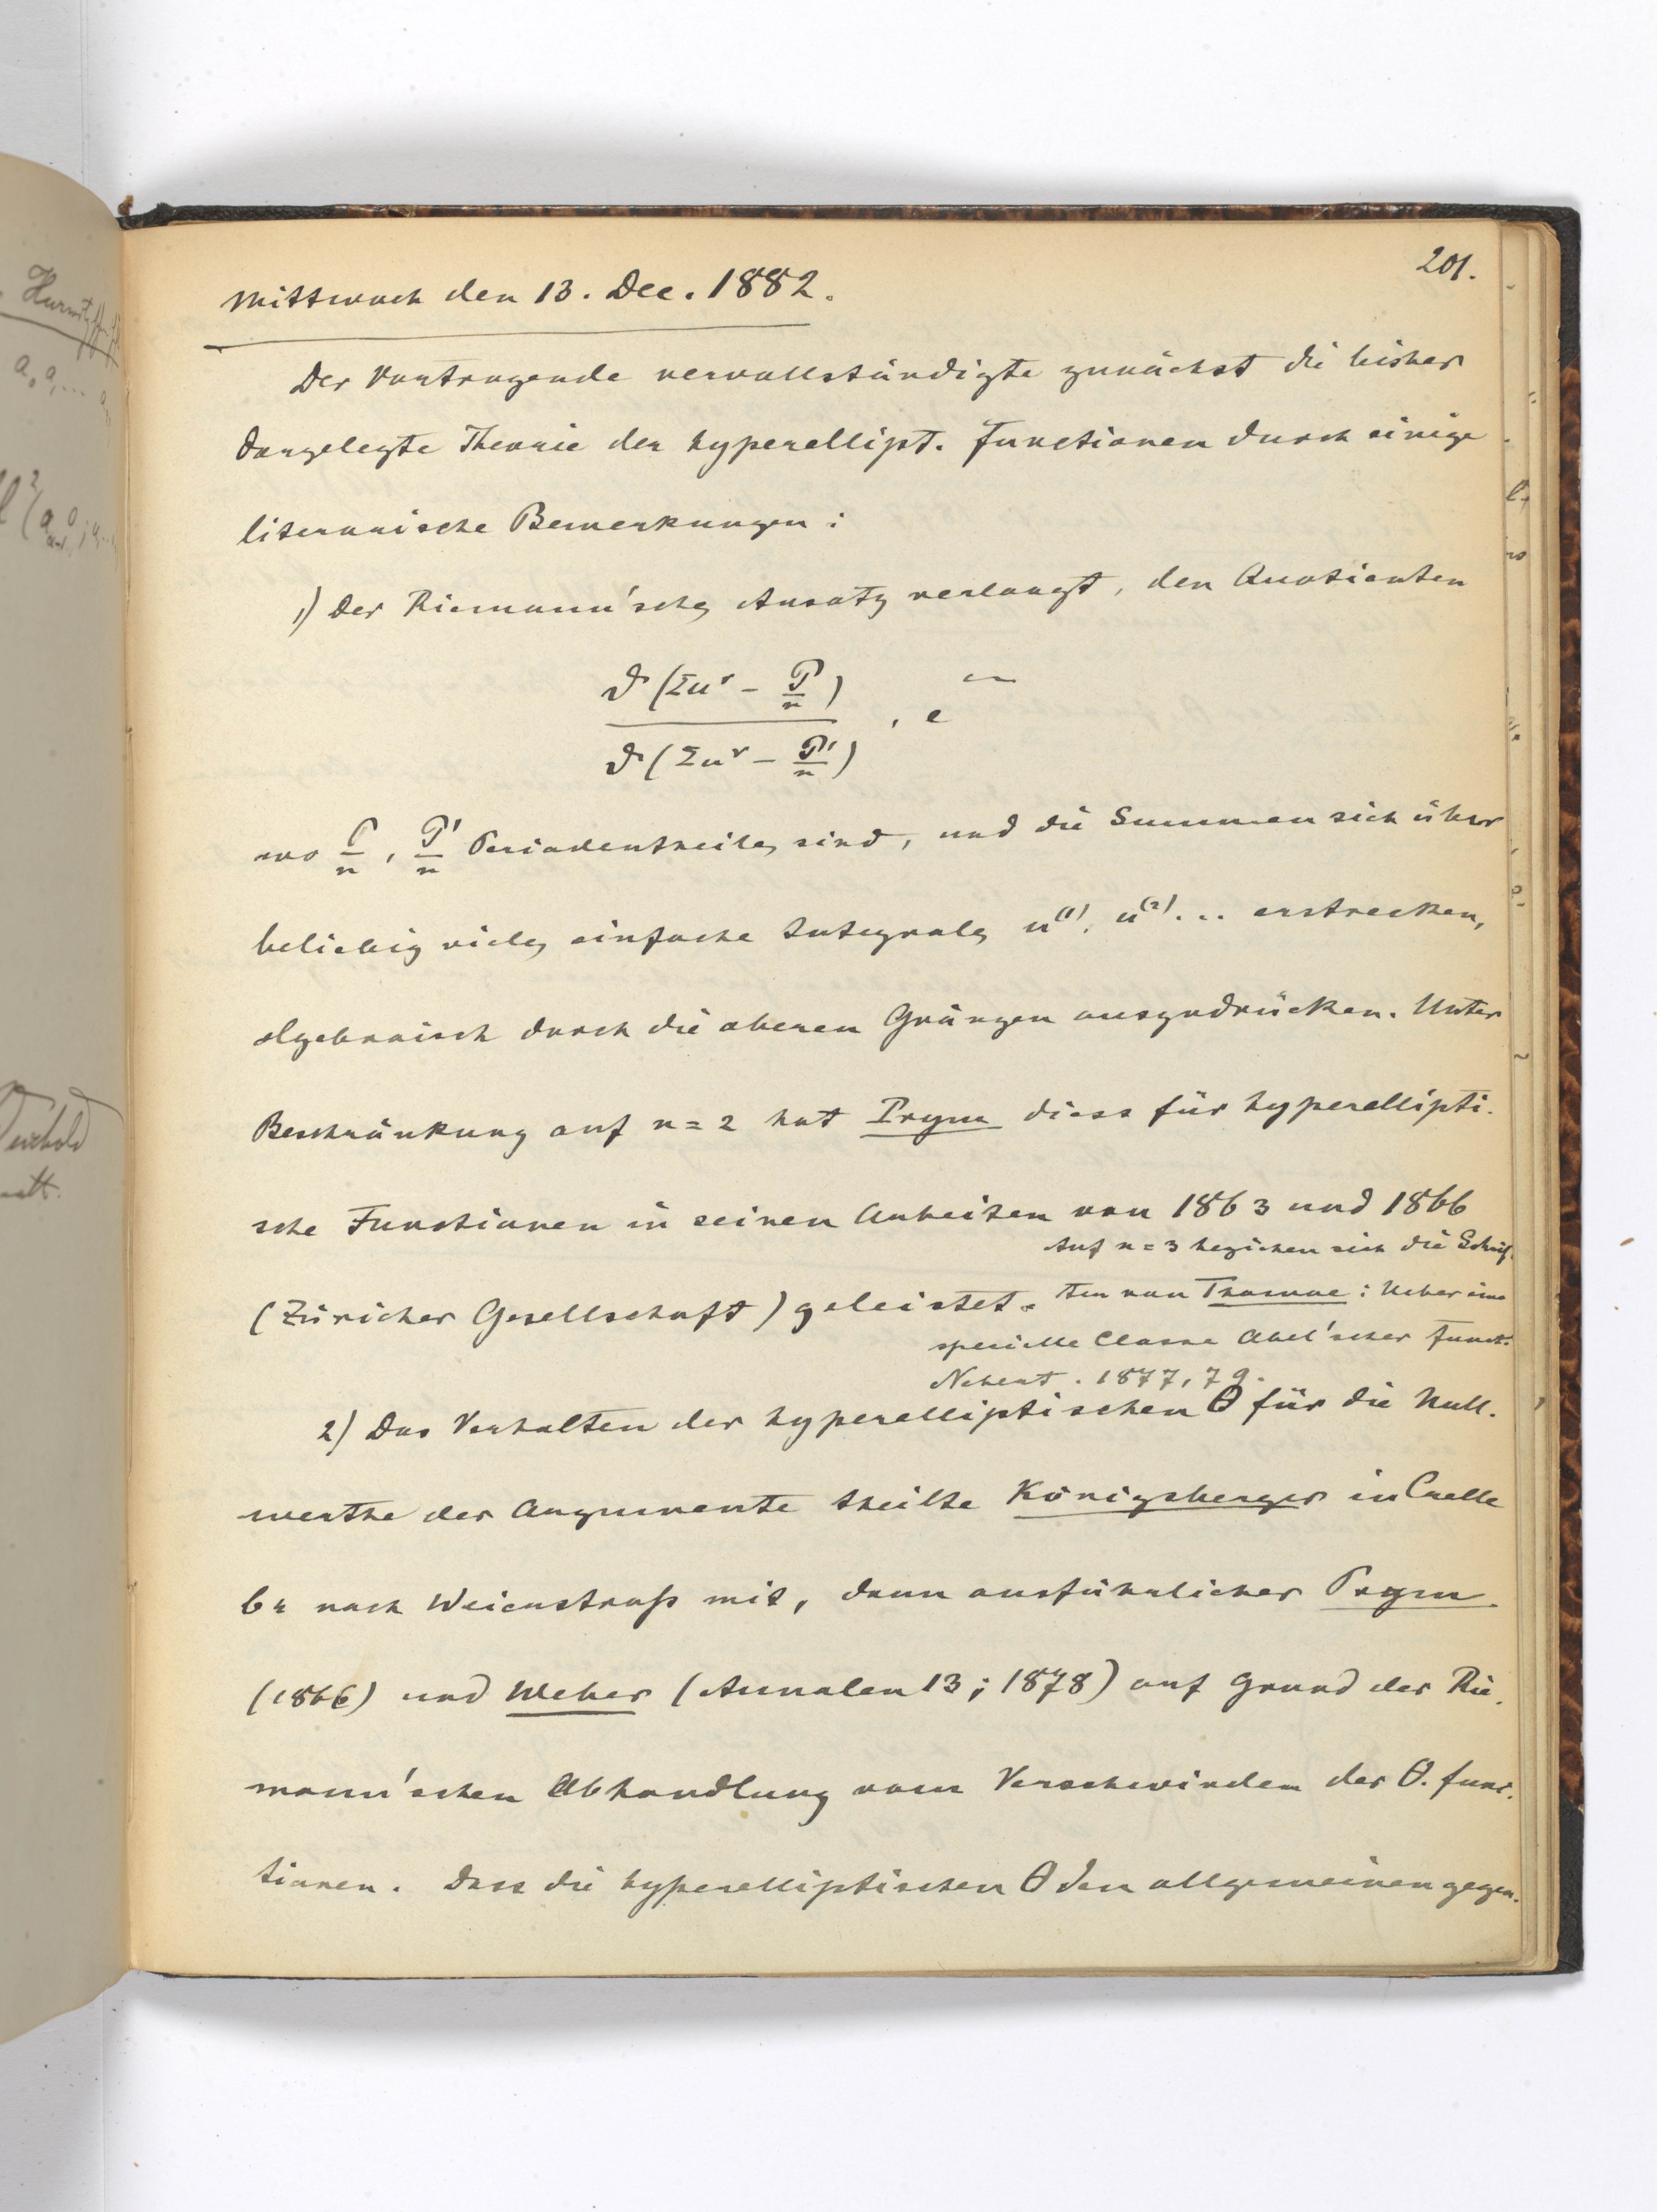 201.
Mittwoch den 13. Dec. 1882.
Der Vortragende vervollständigte zunächst die bisher
dargelegte Theorie der hyperellipt. Functionen durch einige
literarische Bemerkungen:
1) Der Riemann'sche Ansatz verlangt, den Quotienten
ϑ(Σu^ν − P/n) / ϑ(Σu^ν − P'/n) . e^~
wo P/n, P'/n Periodentheile sind, und die Summen sich über
beliebig viele einfache Integrale u^(1), u^(2)... erstrecken,
algebraisch durch die oberen Gränzen auszudrücken. Unter
Beschränkung auf n = 2 hat Prym diess für hyperellipti-
sche Functionen in seinen Arbeiten von 1863 und 1866
(Züricher Gesellschaft) geleistet.
Auf n = 3 beziehen sich die Schrif-
ten von Thomae: Ueber eine
specielle Classe Abel'scher Funct.
Nebert. 1877, 79.
2) Das Verhalten der hyperelliptischen Θ für die Null-
werthe der Argumente theilte Königsberger in Crelle
64 nach Weierstraß mit, dann ausführlicher Prym
(1866) und Weber (Annalen 13; 1878) auf Grund der Rie-
mann'schen Abhandlung vom Verschwinden der Θ-func-
tionen. Dass die hyperelliptischen Θ den allgemeinen gegen-
Hurwitz